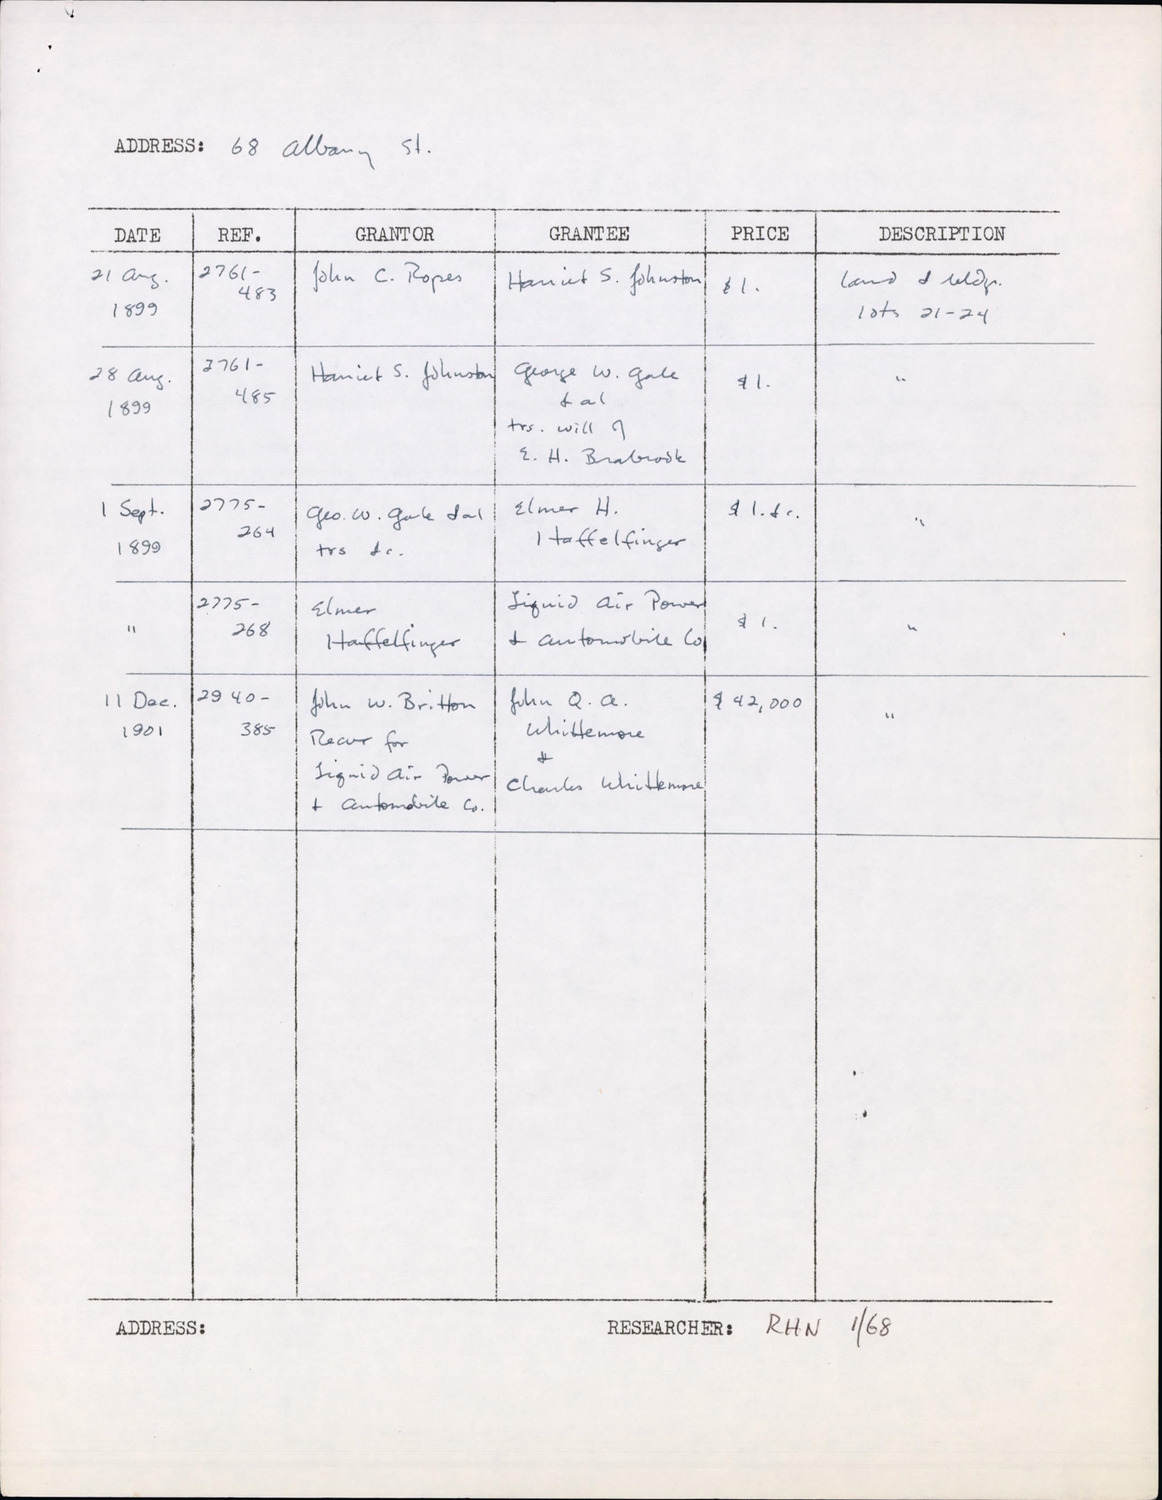 ADDRESS: 68 Albany St.
DATE REF. GRANTOR GRANTEE PRICE DESCRIPTION
21 Aug. 1899 2761-483 John C. Ropes Harriet S. Johnston $1. land & bldgs. lots 21-24
28 Aug. 1899 2761-485 Harriet S. Johnston George W. Gale & al trs. will of E. H. Brabrook $1. "
1 Sept. 1899 2775-264 Geo. W. Gale & al trs &c. Elmer H. Haffelfinger $1.&c. "
" 2775-268 Elmer Haffelfinger Liquid Air Power & Automobile Co $1. "
11 Dec. 1901 2940-385 John W. Britton Recvr for Liquid Air Power & Automobile Co. John Q. A. Whittemore & Charles Whittemore $42,000 "
ADDRESS: RESEARCHER: RHN 1/68